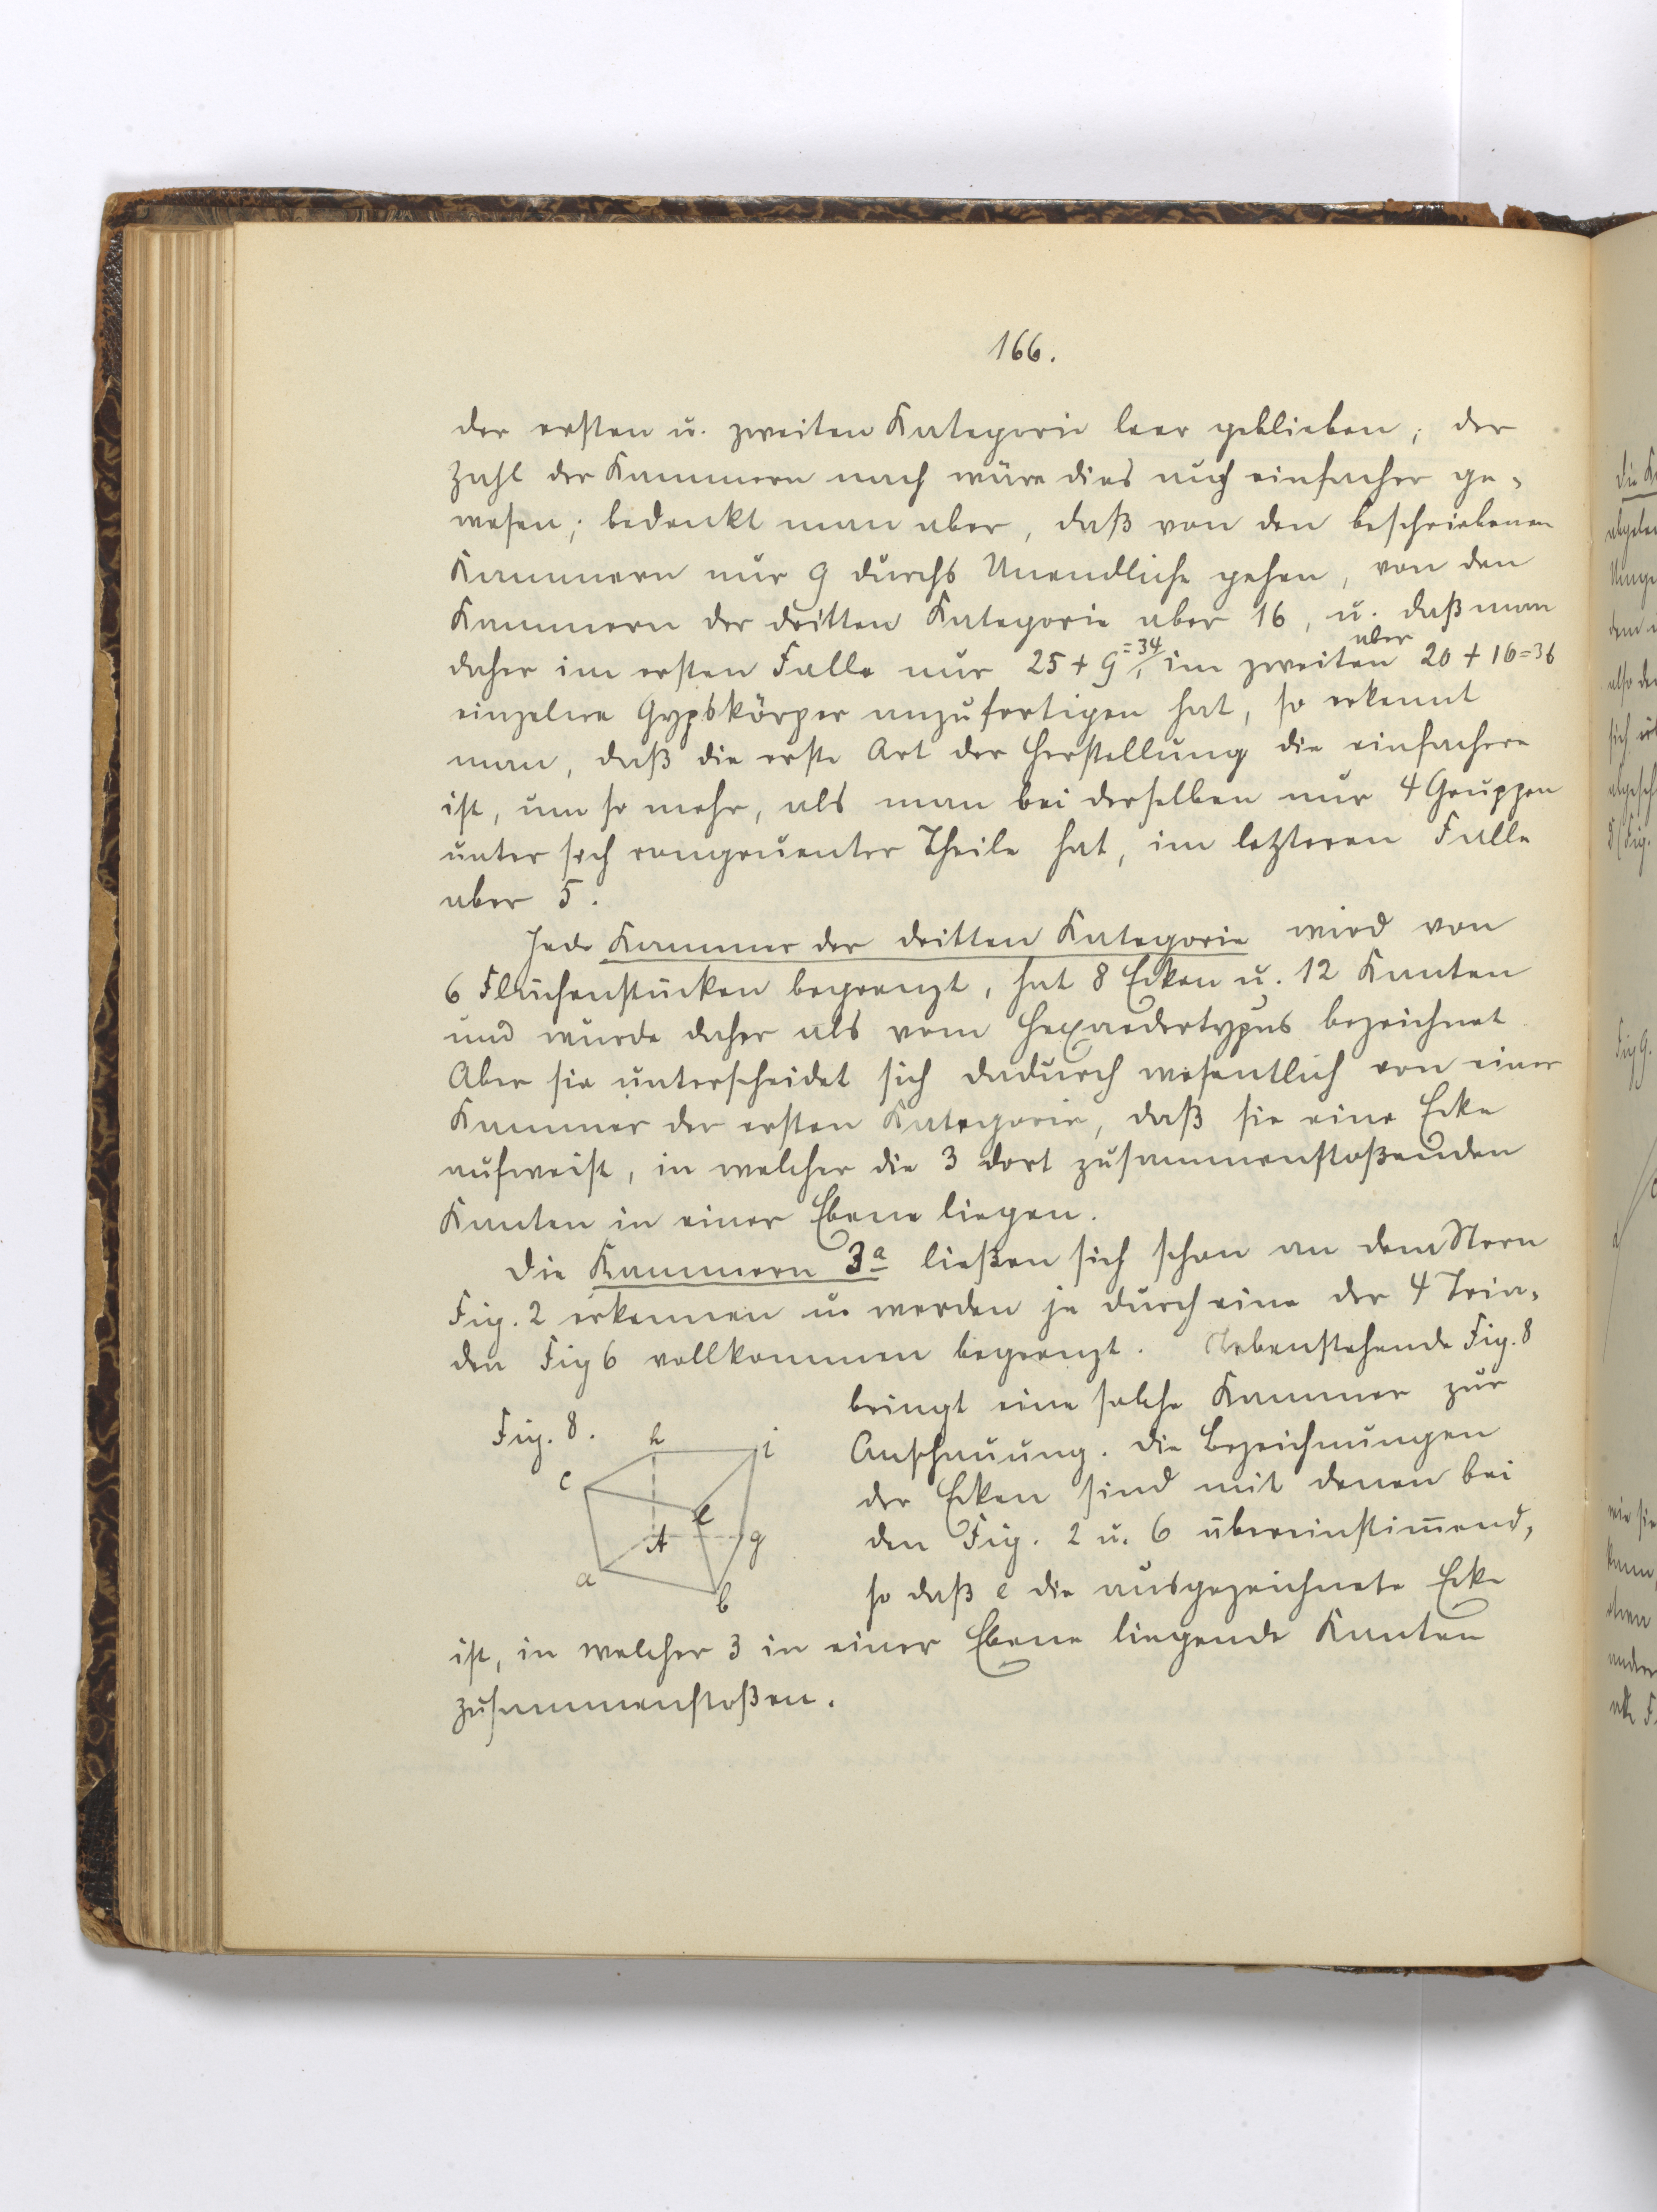 166.
der ersten u. zweiten Kategorie leer geblieben; der
Zahl der Kammern nach wäre dies auch einfacher ge-
wesen; bedenkt man aber, daß von den beschriebenen
Kammern nur 9 durchs Unendliche gehen, von den
Kammern der dritten Kategorie aber 16, u. daß man
daher im ersten Falle nur 25 + 9 = 34, im zweiten aber 20 + 16 = 36
einzelne Gypskörper anzufertigen hat, so erkennt
man, daß die erste Art der Herstellung die einfachere
ist, um so mehr, als man bei derselben nur 4 Gruppen
unter sich congruenter Theile hat, im letzteren Falle
aber 5.
Jede Kammer der dritten Kategorie wird von
6 Flächenstücken begrenzt, hat 8 Ecken u. 12 Kanten
und wurde daher als vom Hexaedertypus bezeichnet
Aber sie unterscheidet sich dadurch wesentlich von einer
Kammer der ersten Kategorie, daß sie eine Ecke
aufweist, in welcher die 3 dort zusammenstoßenden
Kanten in einer Ebene liegen.
Die Kammern 3a ließen sich schon an dem Stern
Fig. 2 erkennen u. werden je durch eine der 4 Tria-
den Fig 6 vollkommen begrenzt. Nebenstehende Fig. 8
bringt eine solche Kammer zur
Fig. 8.
Anschauung. Die Bezeichnungen
der Ecken sind mit denen bei
den Fig. 2 u. 6 übereinstimmend,
so daß e die ausgezeichnete Ecke
ist, in welcher 3 in einer Ebene liegende Kanten
zusammenstoßen.
h
i
c
e
A
g
a
b